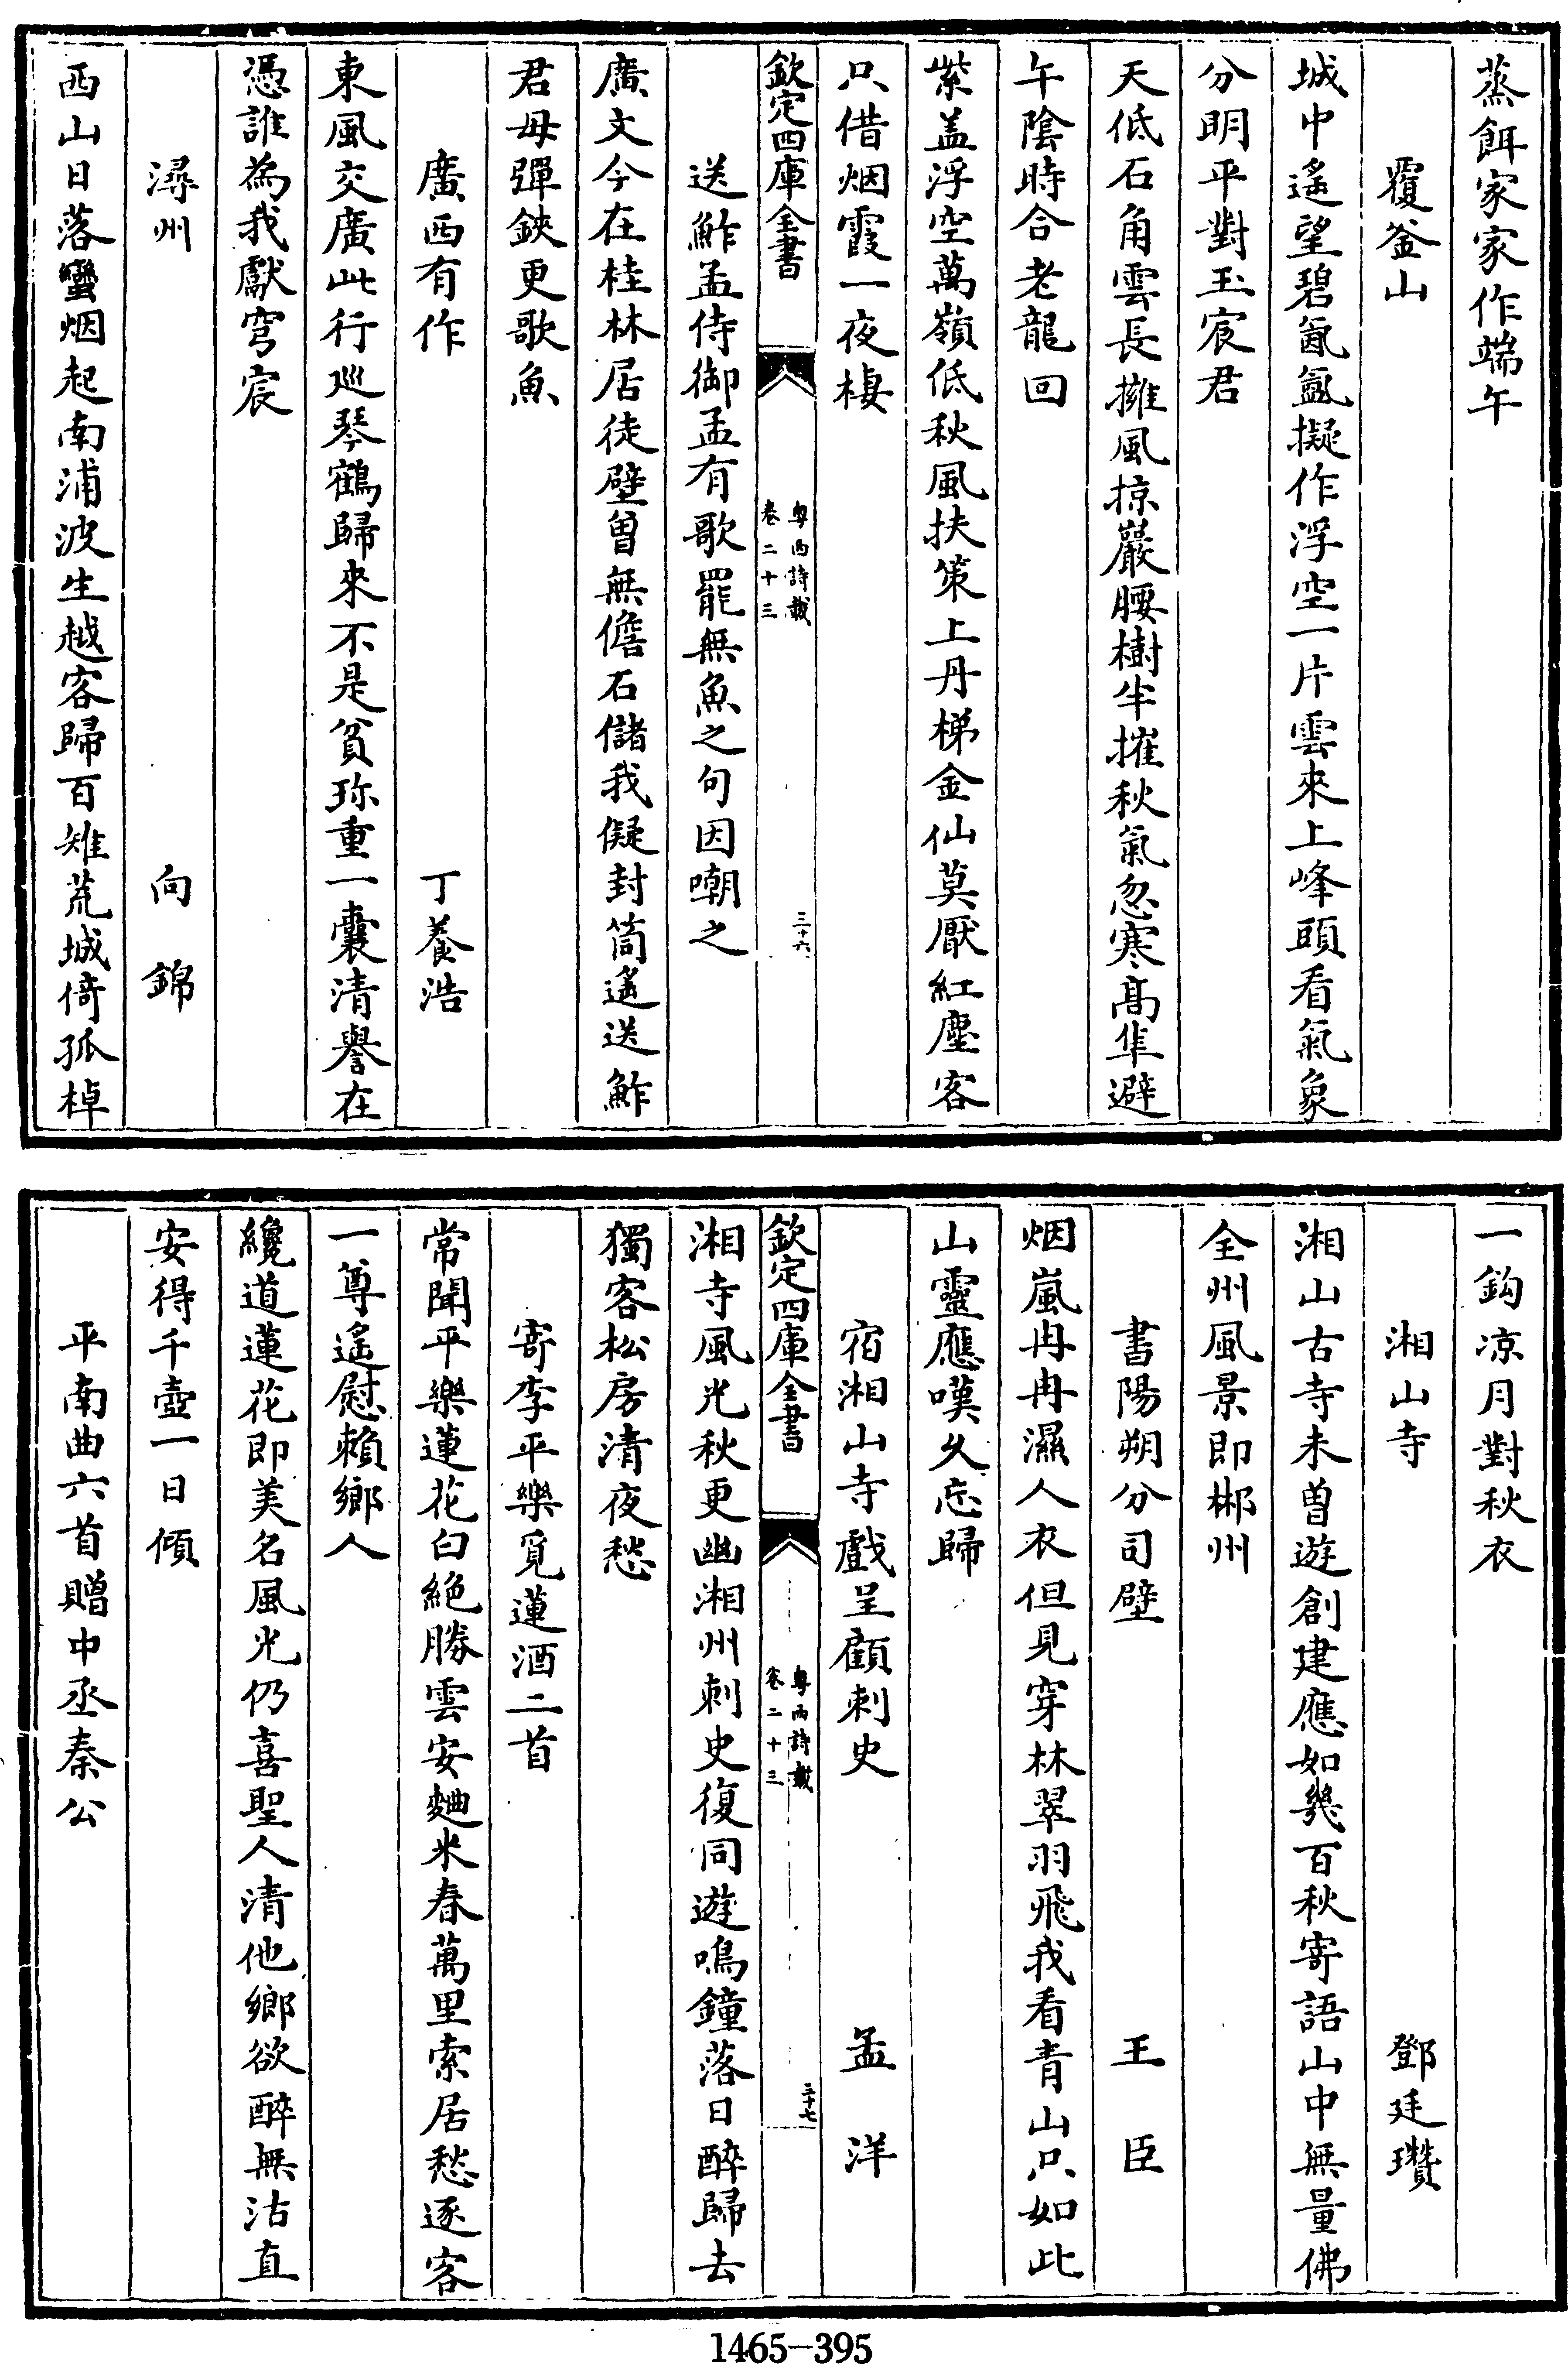 蒸餌家家作端午
覆釜山
城中遙望碧氤氳擬作浮空一片雲來上峰頭看氣象
分明平對玉宸君
天低石角雲長擁風掠巖腰樹半摧秋氣忽寒髙隼避
午陰時合老龍回
紫盖浮空萬嶺低秋風扶策上丹梯金仙莫厭紅塵客
只借烟霞一夜棲
欽定四庫全書
粤西詩載
卷二十三
三十六
送鮓孟侍御孟有歌罷無魚之句因嘲之
廣文今在桂林居徒壁曽無儋石儲我儗封筒遙送鮓
君毋彈鋏更歌魚
廣西有作 丁養浩
東風交廣此行廵琴鶴歸來不是貧珎重一囊清譽在
憑誰為我獻穹宸
潯州 向錦
西山日落蠻烟起南浦波生越客歸百雉荒城倚孤棹
一鈎凉月對秋衣
湘山寺 鄧廷瓚
湘山古寺未曽遊創建應如幾百秋寄語山中無量佛
全州風景即郴州
書陽朔分司壁 王臣
烟嵐冉冉濕人衣但見穿林翠羽飛我看青山只如此
山靈應嘆久忘歸
宿湘山寺戲呈顧刺史 孟洋
欽定四庫全書
粤西詩載
卷二十三
三十七
湘寺風光秋更幽湘州刺史復同遊鳴鐘落日醉歸去
獨客松房清夜愁
寄李平樂覓蓮酒二首
常聞平樂蓮花白絕勝雲安麯米春萬里索居愁逐客
一尊遙慰頼鄉人
纔道蓮花即美名風光仍喜聖人清他鄉欲醉無沽直
安得千壺一日傾
平南曲六首贈中丞秦公
1465-395